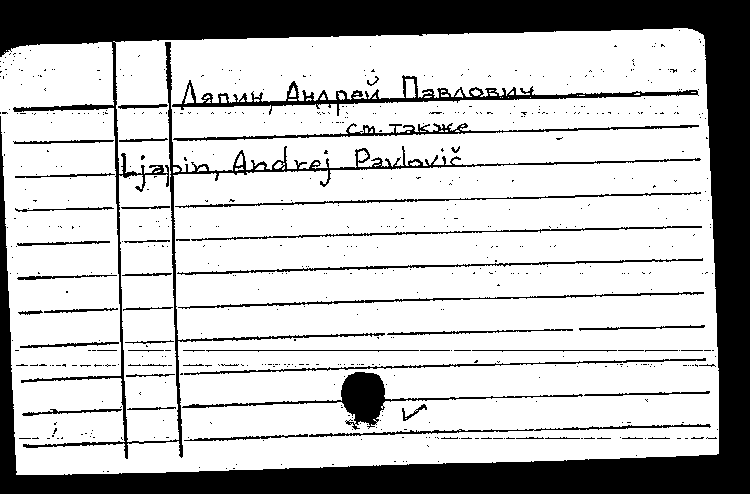 Ляпин, Андрей Павлович
см. также
Ljapin, Andrej Pavlovič